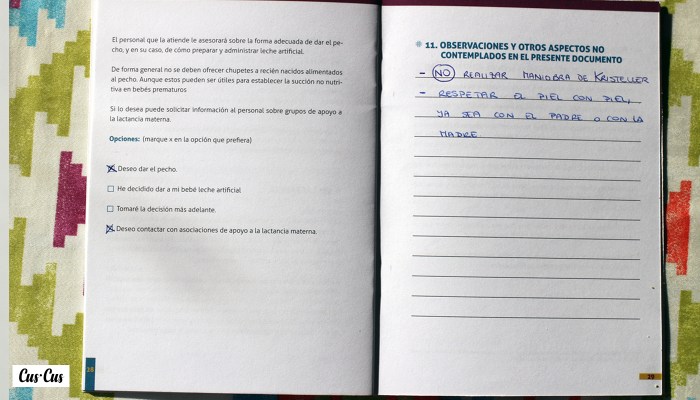 El personal que la atiende le asesorará sobre la forma adecuada de dar el pe-
cho, y en su caso, de cómo preparar y administrar leche artificial.
De forma general no se deben ofrecer chupetes a recién nacidos alimentados
al pecho. Aunque estos pueden ser útiles para establecer la succión no nutri-
tiva en bebés prematuros
Si lo desea puede solicitar información al personal sobre grupos de apoyo a
la lactancia materna.
Opciones: (marque x en la opción que prefiera)
Deseo dar el pecho.
He decidido dar a mi bebé leche artificial
Tomaré la decisión más adelante.
Deseo contactar con asociaciones de apoyo a la lactancia materna.
11. OBSERVACIONES Y OTROS ASPECTOS NO
CONTEMPLADOS EN EL PRESENTE DOCUMENTO
- NO REALIZAR MANIOBRA DE KRISTELLER
- RESPETAR EL PIEL CON PIEL,
YA SEA CON EL PADRE O CON LA
MADRE
29
Cus·Cus